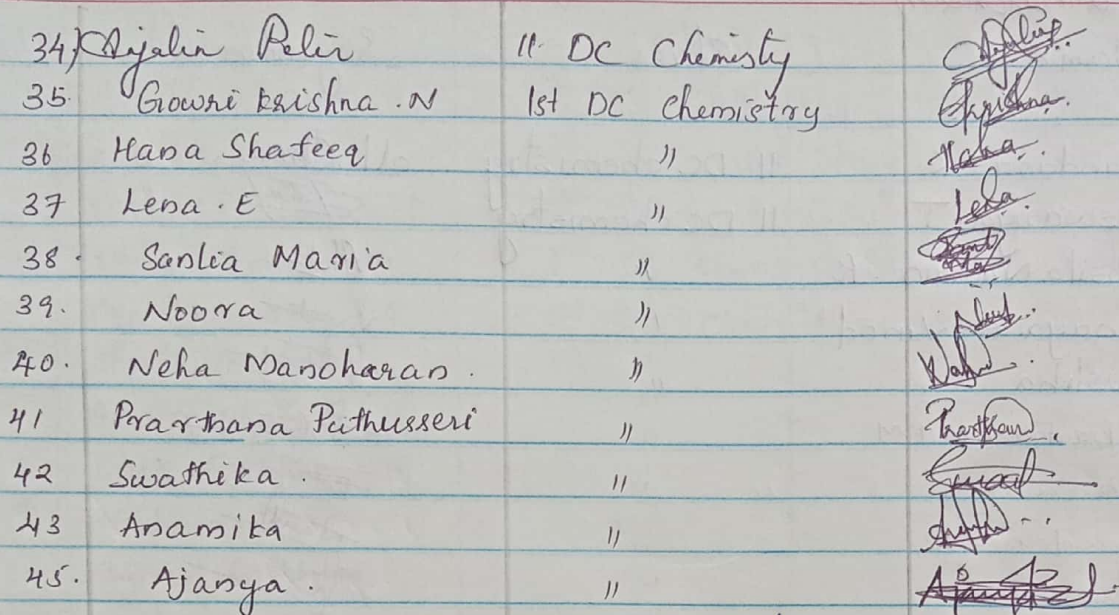 34) Anjalin Pelix II DC Chemisty
35. Gowri krishna . N 1st DC chemistry Gkrishna.
36 Hana Shafeeq " Hana.
37 Lena . E " Lena.
38. Sanlia Maria "
39. Noora "
40. Neha Manoharan . "
41 Prarthana Puthusseri "
42 Swathika . "
43 Anamika "
45. Ajanya . "